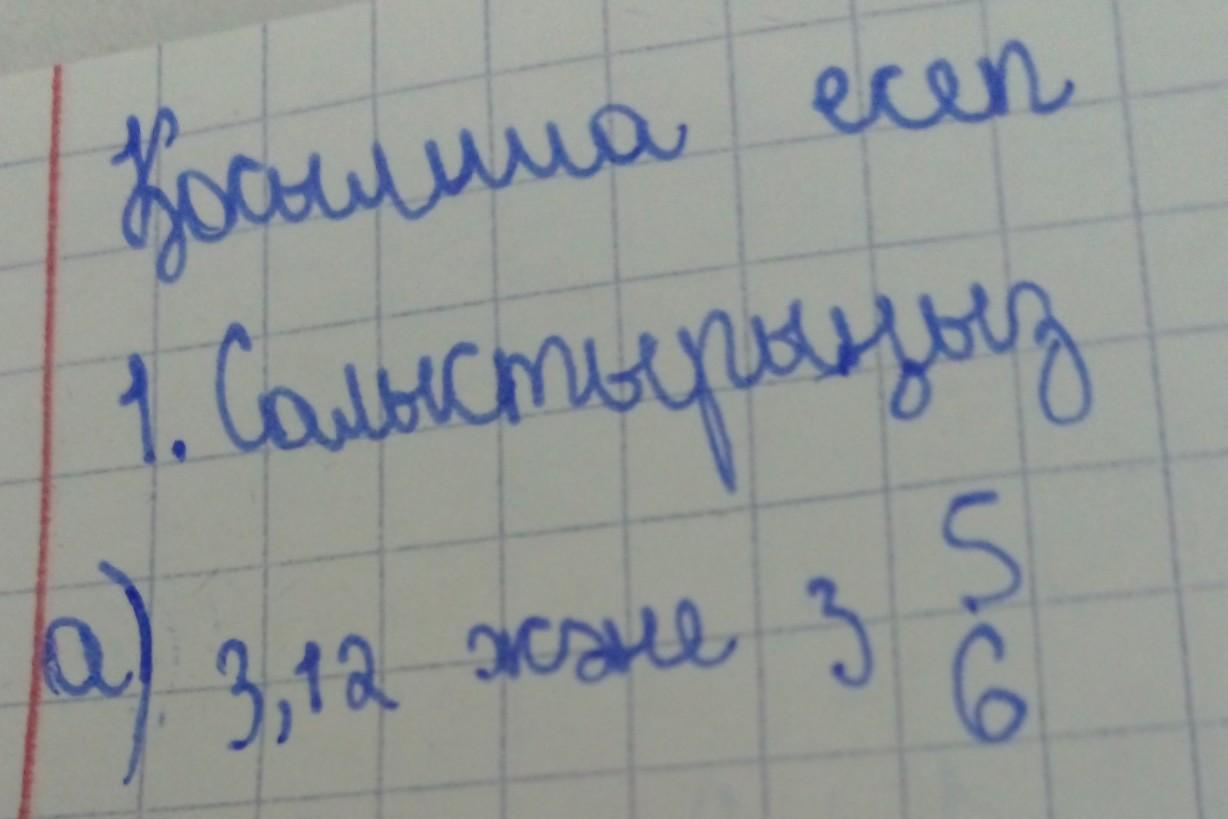 Қосымша есеп
1. Салыстырыңыз
а) 3,12 және 3 5/6